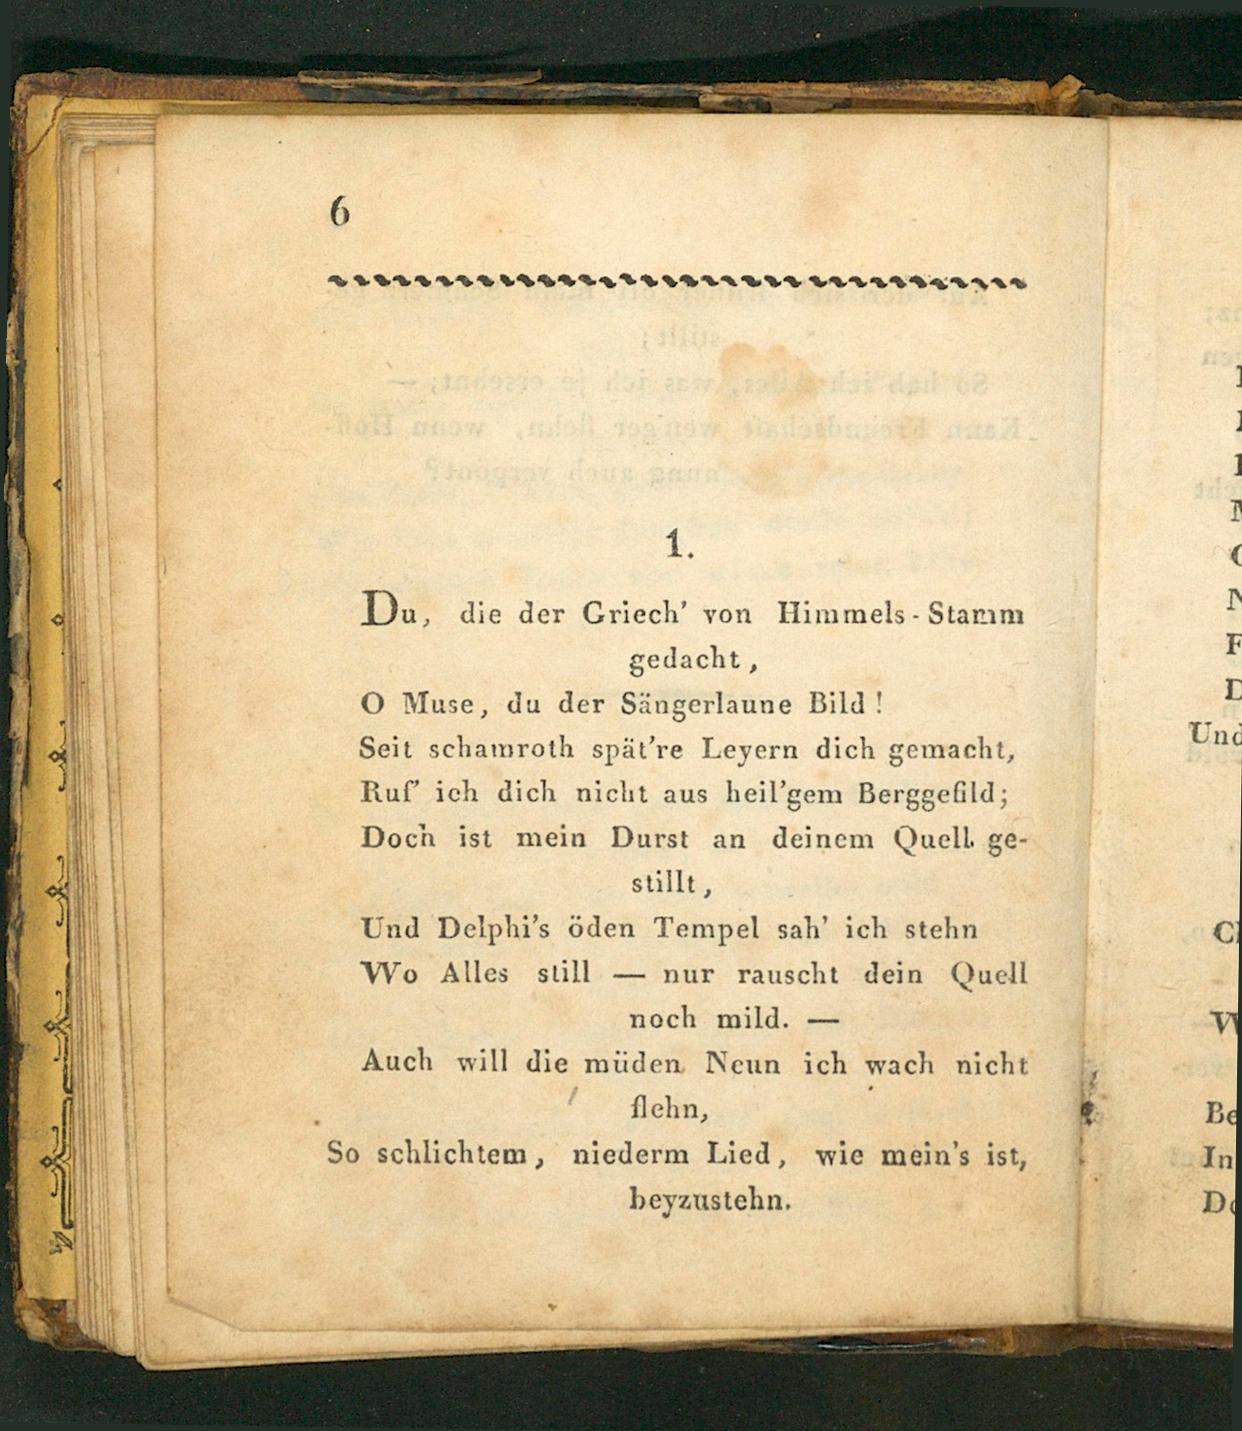 6
1.
Du, die der Griech' von Himmels-Stamm
gedacht,
O Muse, du der Sängerlaune Bild!
Seit schamroth spät're Leyern dich gemacht,
Ruf' ich dich nicht aus heil'gem Berggefild;
Doch ist mein Durst an deinem Quell ge-
stillt,
Und Delphi's öden Tempel sah' ich stehn
Wo Alles still — nur rauscht dein Quell
noch mild. —
Auch will die müden Neun ich wach nicht
flehn,
So schlichtem, niederm Lied, wie mein's ist,
beyzustehn.
Und
Be
In